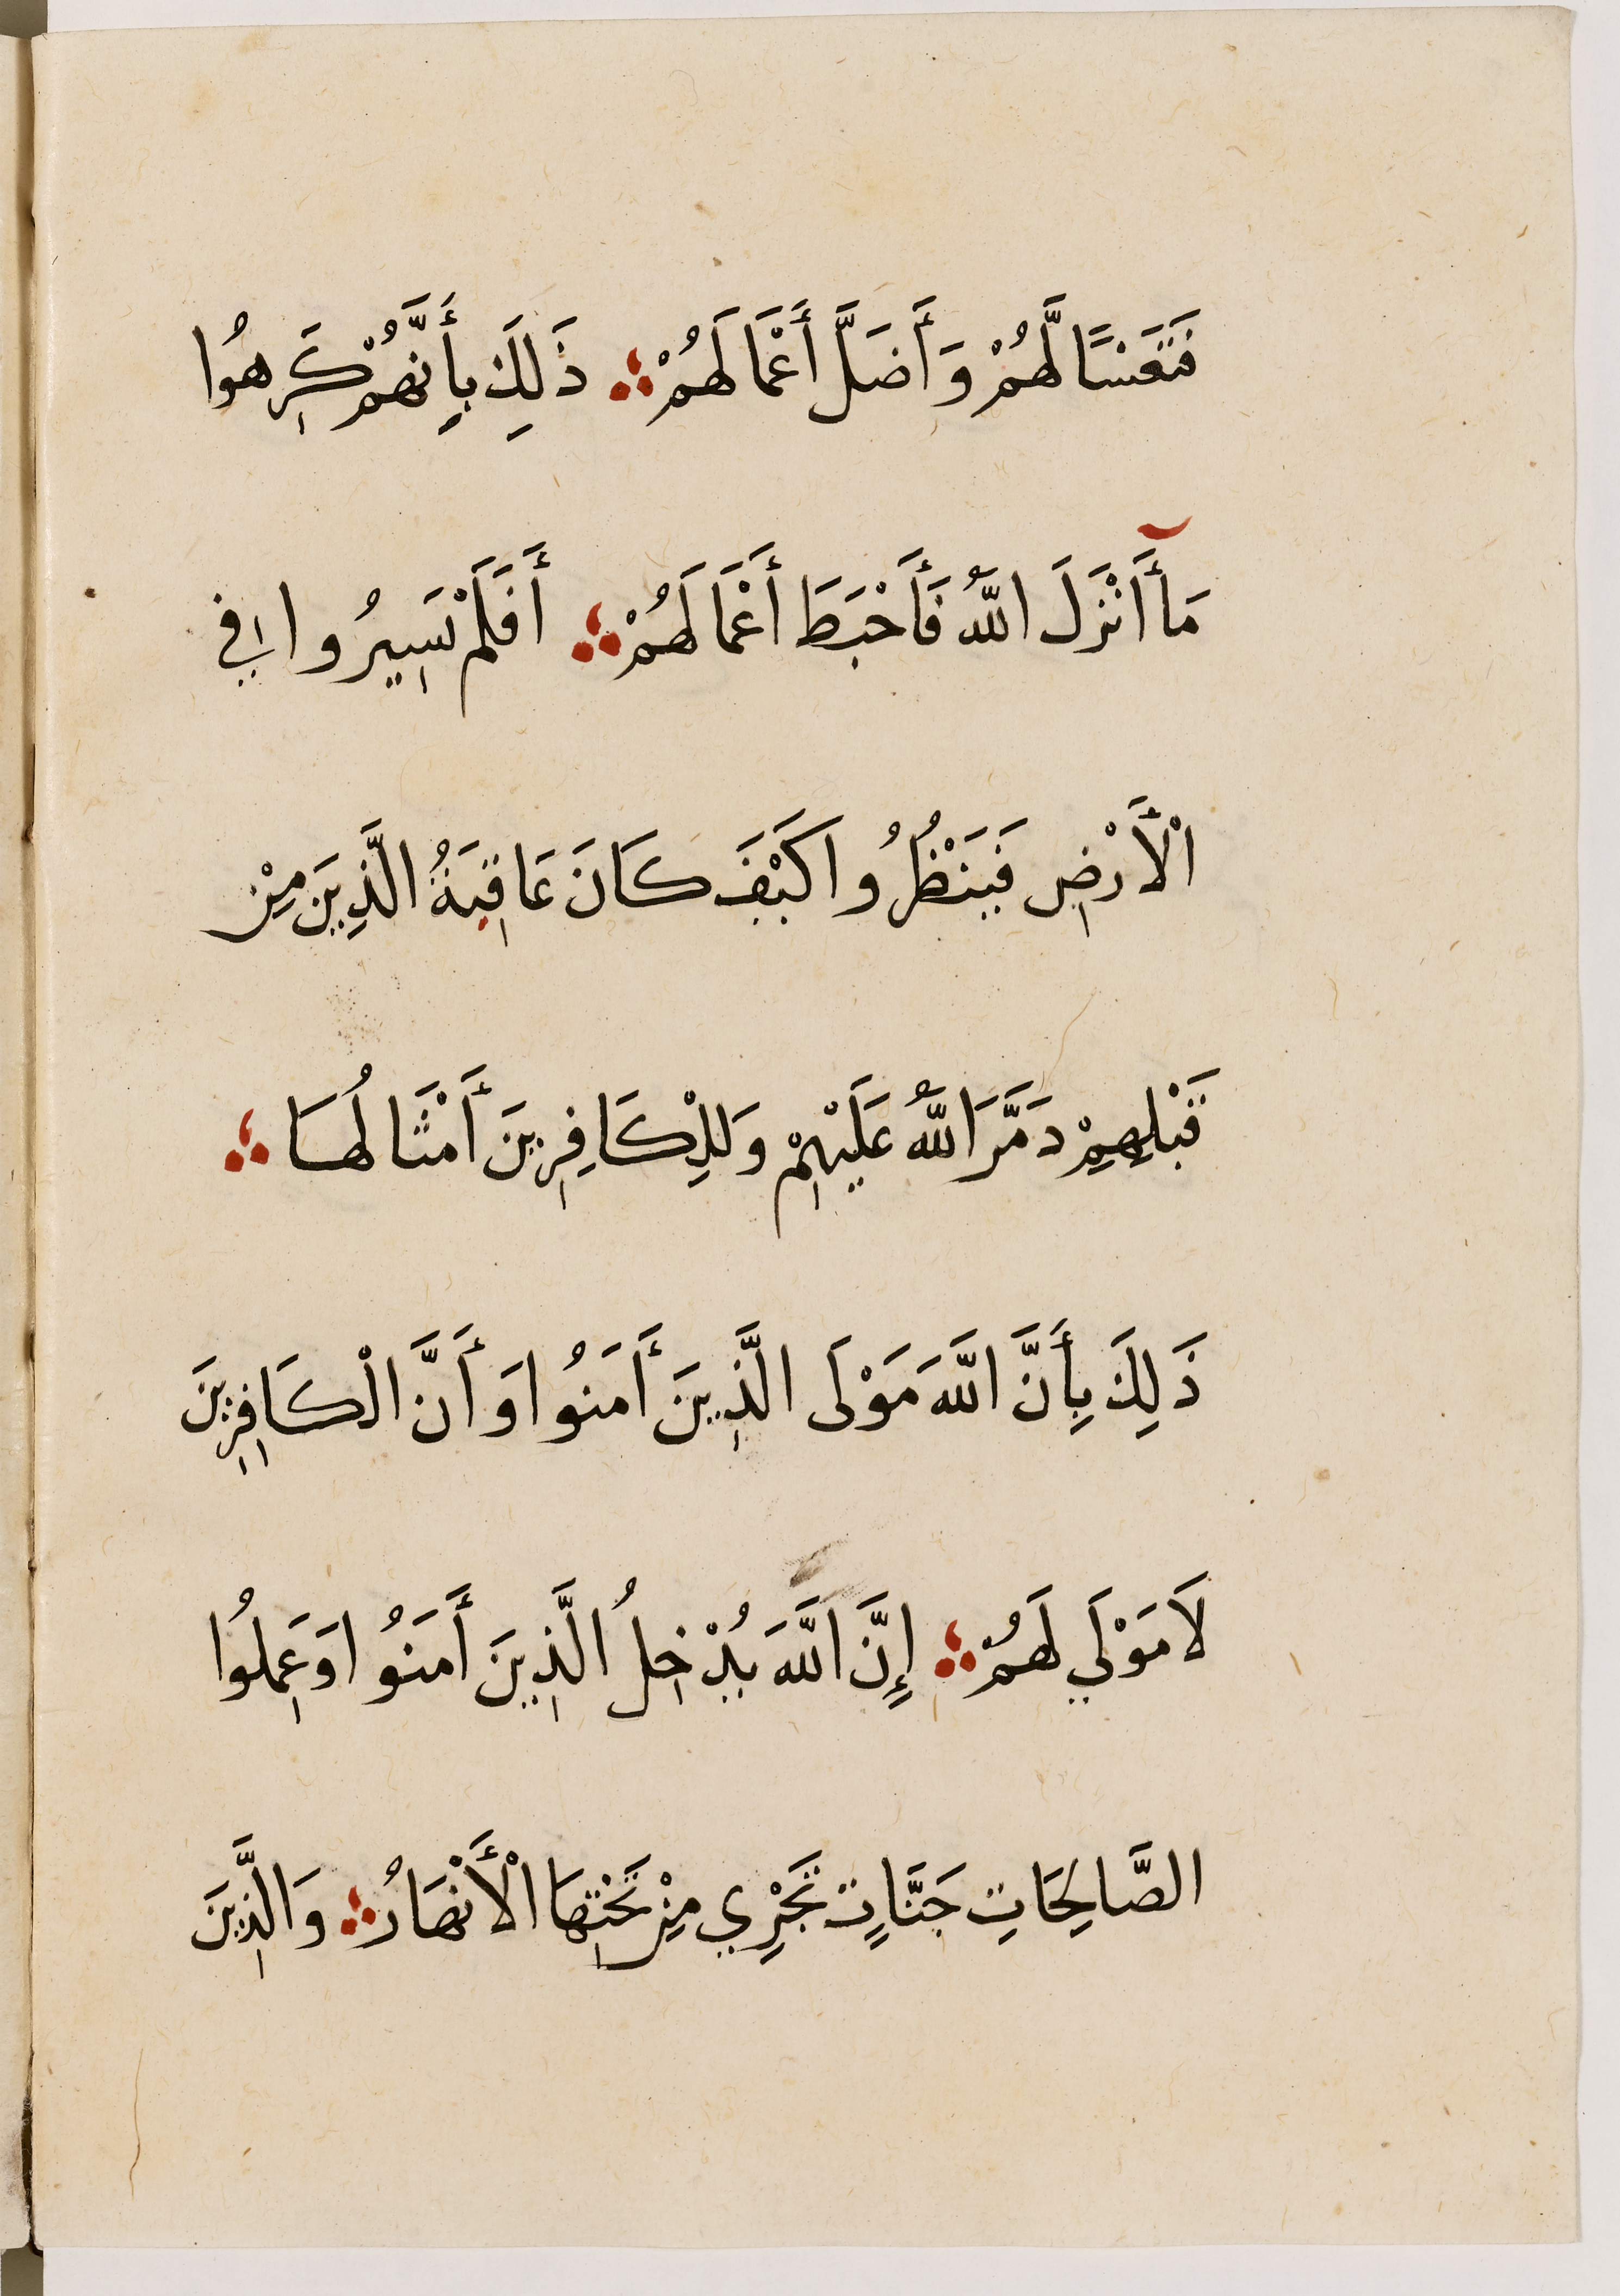 فَتَعْسًا لَّهُمْ وَأَضَلَّ أَعْمَالَهُمْ ذَلِكَ بِأَنَّهُمْ كَرِهُوا
مَآ أَنْزَلَ اللَّهُ فَأَحْبَطَ أَعْمَالَهُمْ أَفَلَمْ يَسِيرُوا فِي
الْأَرْضِ فَيَنْظُرُوا كَيْفَ كَانَ عَاقِبَةُ الَّذِينَ مِنْ
قَبْلِهِمْ دَمَّرَ اللَّهُ عَلَيْهِمْ وَلِلْكَافِرِينَ أَمْثَالُهَا
ذَلِكَ بِأَنَّ اللَّهَ مَوْلَى الَّذِينَ أَمَنُوا وَأَنَّ الْكَافِرِينَ
لَا مَوْلَي لَهُمْ إِنَّ اللَّهَ يُدْخِلُ الَّذِينَ أَمَنُوا وَعَمِلُوا
الصَّالِحَاتِ جَنَّاتٍ تَجْرِي مِنْ تَحْتِهَا الْأَنْهَارُ وَالَّذِينَ